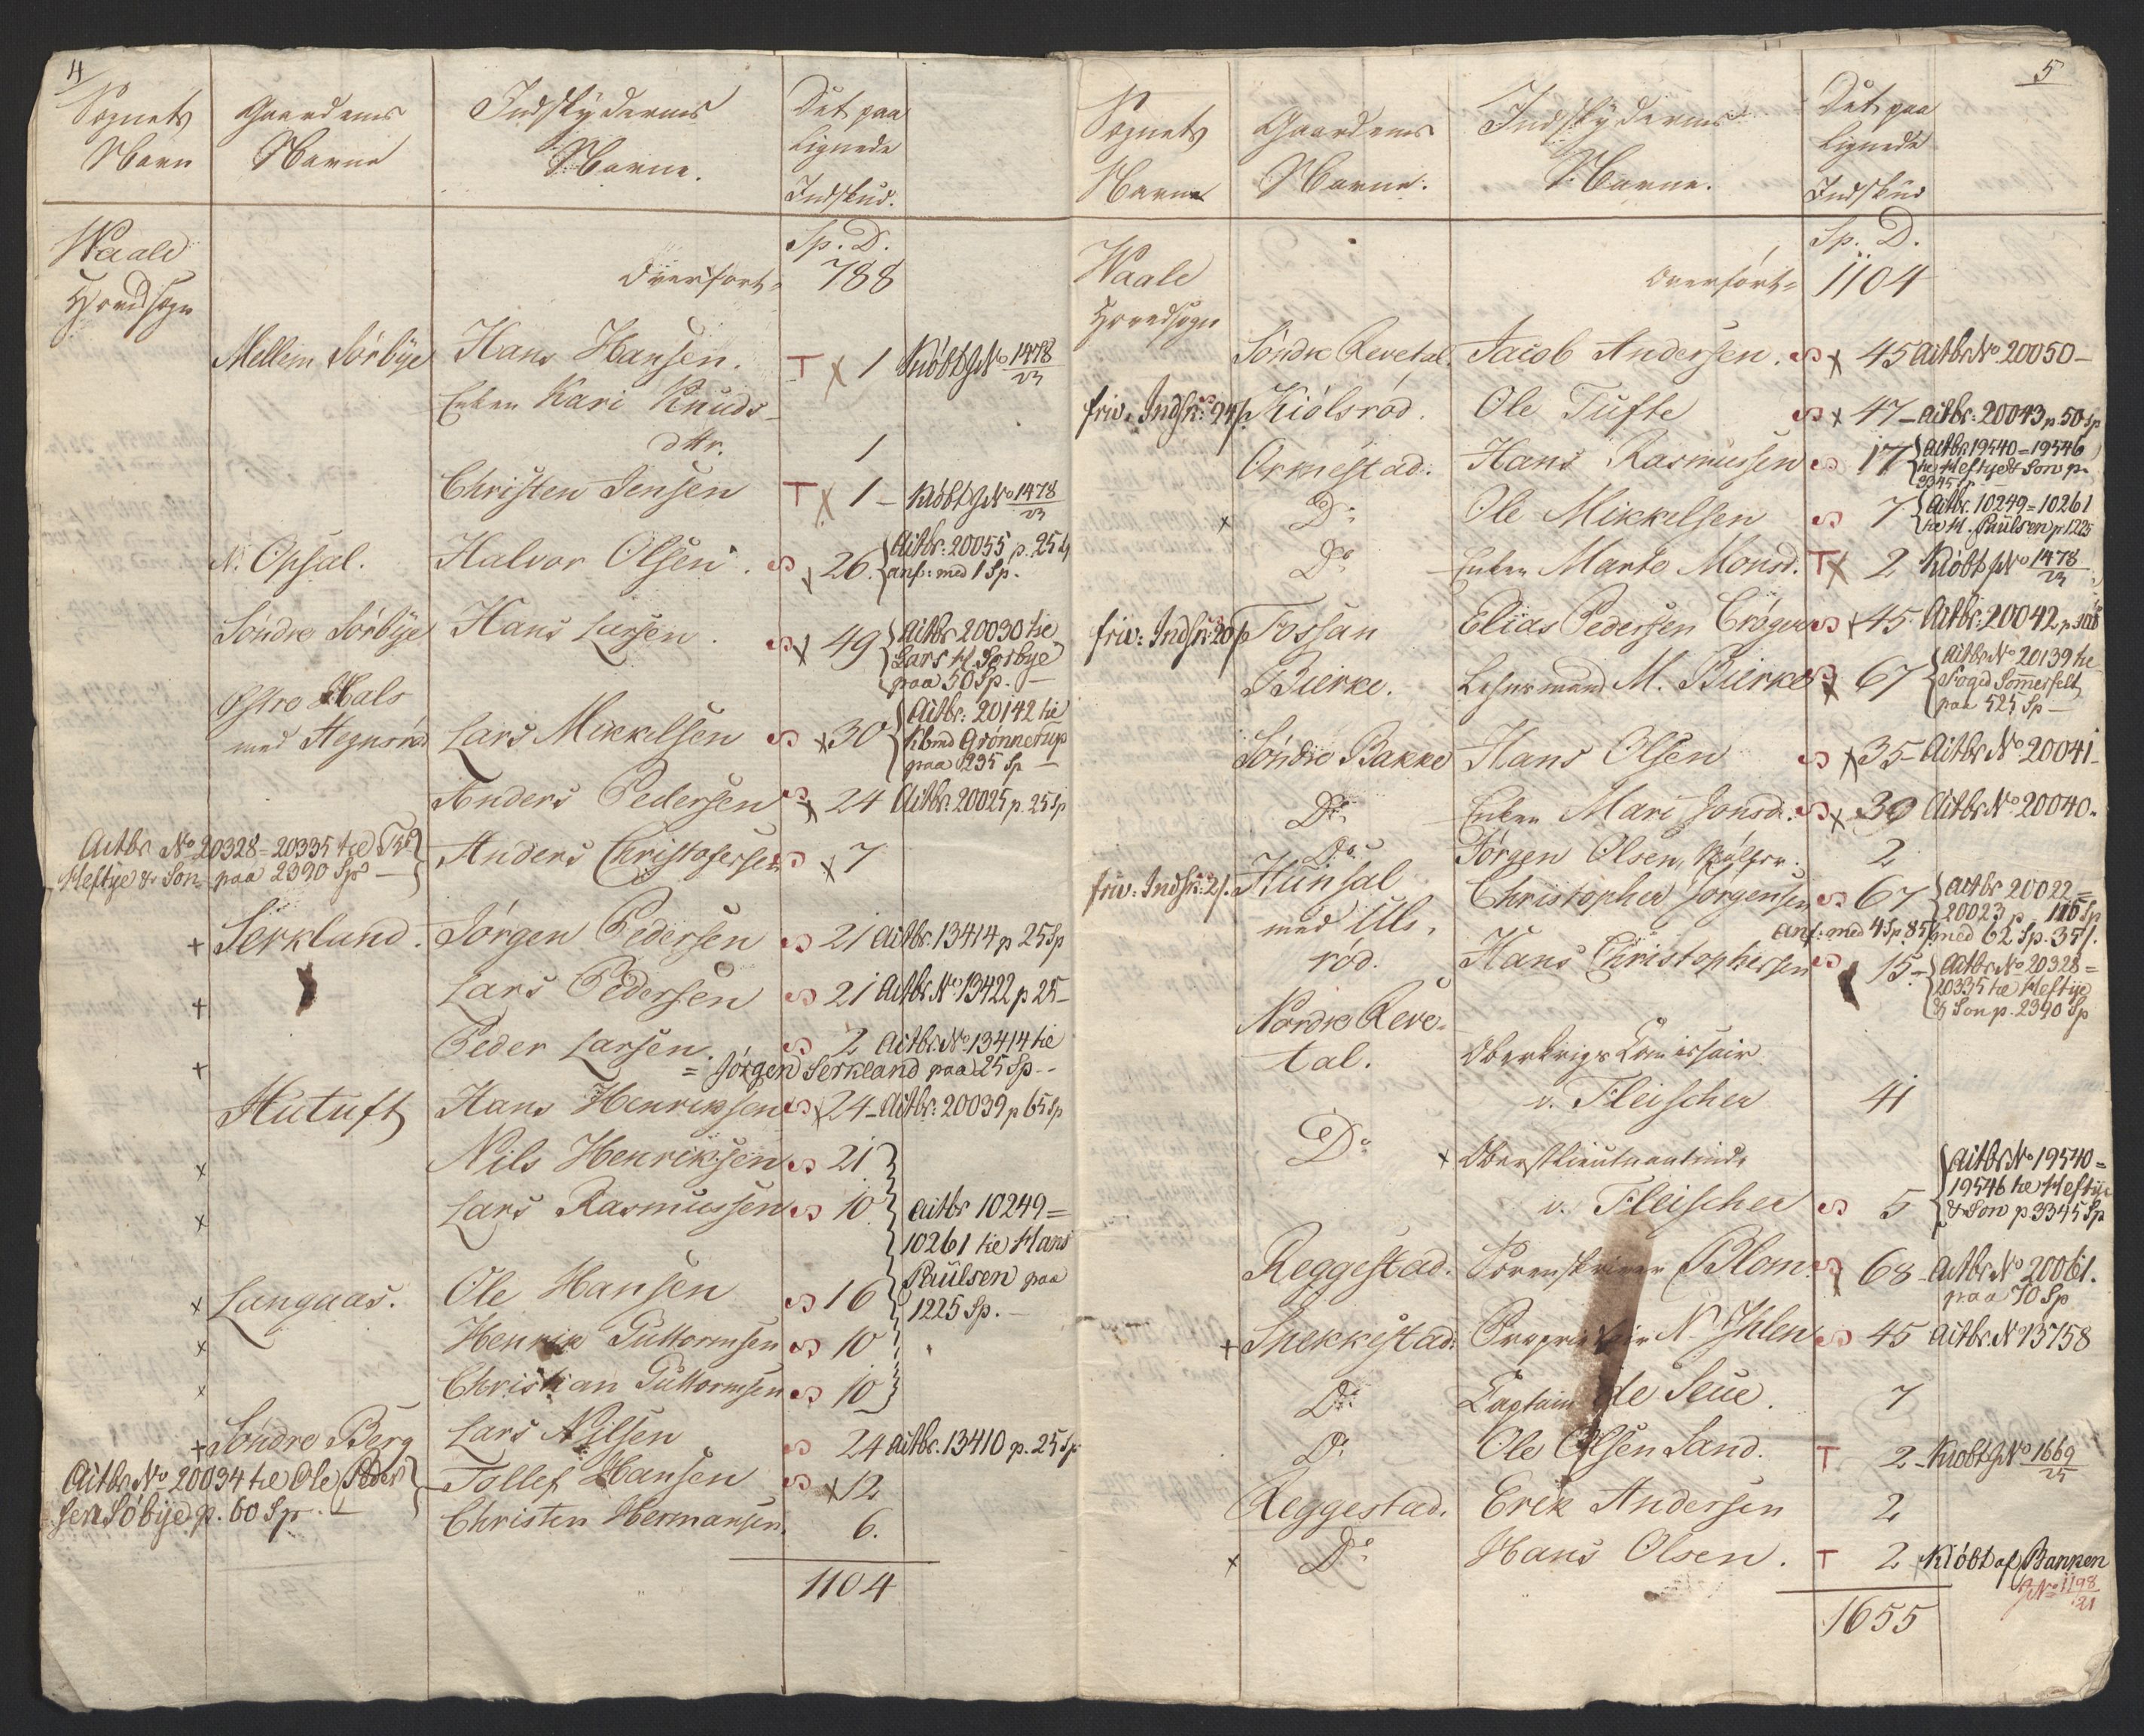 4
Sognets Navn
Gaardenes Navne
Indskydernes Navne.
Det paa Lignede Indskud.
Waale Hovedsogn
Sp. D.
Overført = 788
Mellem Sørbye Hans Hansen. T x 1 Kiøbt J No 1478/23
Enken Kari Knuds-
dttr. 1
Christen Jensen T x 1 - Kiøbt J No 1478/23
N. Opsal. Halvor Olsen. S x 26. Actbr: 20055 p. 25 Sp
anf: med 1 Sp.
Søndre Sørbye Hans Larsen. S x 49 Actbr 20030 he
Lars H. Sørbye
paa 50 Sp. -
Østre Hals
med Hegnsrød Lars Mikkelsen S x 30 Actbr: 20142 he
Kbmd Grønnerup
paa 235 Sp -
Anders Pedersen S x 24 Actbr. 20025 p. 25 Sp
Actbr No 20328 = 20335 he
Heftye & Søn paa 2390 Sp -
Anders Christofersen S x 7
+ Serkland. Jørgen Pedersen S 21 Actbr. 13414 p 25 Sp
+ Lars Pedersen S 21 Actbr No 13422 p 25 -
+ Peder Larsen. S 2 Actbr. No 13414 he
= Jørgen Serkland paa 25 Sp -
Hutuft Hans Henriksen S x 24 - Actbr: 20039 p 65 Sp
x Nils Henriksen S 21
x Lars Rasmussen S 10 actbr 10249 =
10261 he Hans
x Langaas. Ole Hansen S 16 Paulsen paa
1225 Sp. -
x Henrik Guttormsen S 10
x Christian Guttormsen S 10
+ Søndre Berg Lars Nilsen S 24 actbr. 13410 p. 25 Sp
Actbr No 20034 he Ole Peder
sen Søbye p. 60 Sp. -
Tollef Hansen S x 12
Christen Hermansen. 6.
1104
5
Sognets Navne
Gaardenes Navne.
Indskydernes Navne.
Det paa Lignede Indskud
Waale Hovedsogn
Sp. D.
Overført = 1104
Søndre Revetal. Jacob Andersen. S x 45 Actbr No 20050 -
friv: Indsk: 94 s. Kiølsrød. Ole Tufte S x 47 - actbr: 20043 p 50 Sp
Ormestad. Hans Rasmussen S 17 Actbr 19540 = 19546
he Heftye & Søn p.
3345 Sp -
x Do Ole Mikkelsen S 7 Actbr. 10249 = 10261
he H. Paulsen p 1225
Do Enken Marte Monsd. T x 2 Kiøbt J No 1478/23
friv: Indsk: 20 s Fossan Elias Pedersen Crøger S x 45 Actbr: 20042 p
Bierke. Lehnsmand M. Bierke S x 67 Actbr No 20139 he
Foged Sommerfelt
paa 525 Sp -
Søndre Bakke Hans Olsen S x 35 - Actbr No 20041 -
Do Enken Mari Jonsd. S x 39 Actbr No 20040 -
Do Jørgen Olsen 2
friv: Indsk: 2 s. Hunsal Christopher Jørgensen S 67 actbr 20022 =
20023 p 115 Sp
med Uls-
anf: med 4 Sp 85 s med 62 Sp. 35 s.
rød. Hans Christophersen S 15 - Actbr No 20328 =
20335 he Heftye
& Søn p. 2390 Sp
Nordre Reve-
tal. Oberkrigs Comissair
v. Fleischer 41
Do x Oberstlieutnantinde
v. Fleischer S 5 actbr No 19540 =
19546 he Heftye
& Søn p 3345 Sp
Reggestad. Sorenskriver Blom. S 68 - Actbr No 20061.
paa 70 Sp
+ Snekkestad. Proprietair N. Ihlen S 45 Actbr. No 13758
Do Captain de Seue. 7
Do Ole Olsen Sand. T 2 - Kiøbt J No 1669/25
Reggestad. Erik Andersen 2
x Do Hans Olsen. T 2 Kiøbt af Banken
J No 1198/21
1655